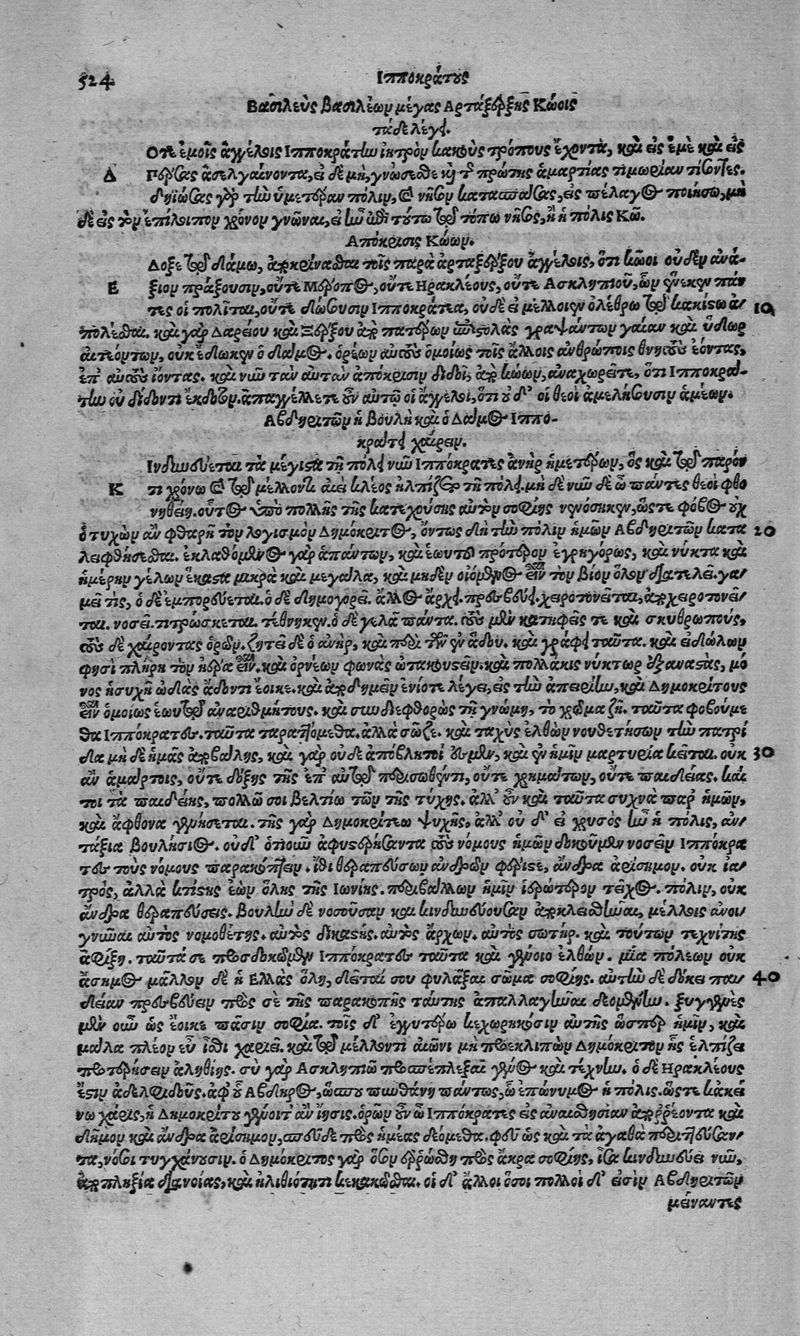 524 Ἱπποκράτους
Βασιλεὺς βασιλέων μέγας Ἀρταξέρξης Κώοις
τάδε λέγει.
Ὅτε ἐμοῖς ἀγγέλοις Ἱπποκράτην ἰητρὸν κακοὺς τρόπους ἔχοντα, καὶ εἰς ἐμὲ καὶ εἰς
Δ Πέρσας ἀσελγαίνοντα, εἰ δὲ μὴ, γνώσεσθε καὶ τῆς πρώτης ἁμαρτίας τιμωρίαν τίσοντες.
δηϊώσας γὰρ τὴν ὑμετέραν πόλιν, καὶ νῆσον κατασπάσας, εἰς πέλαγος ποιήσω, μη
δὲ εἰς τὸν ἐπίλοιπον χρόνον γνῶναι, εἰ ἦν ἐπὶ τούτῳ τῷ τόπῳ νῆσος, ἢ ἡ πόλις Κῶ.
Ἀπόκρισις Κώων.
Δοξε τῷ δάμῳ, ἀποκρίνασθαι τοῖς παρὰ ἀρταξέρξου ἀγγέλοις, ὅτι κῶοι οὐδὲν ἀνά-
Ε ξιον πράξουσιν, οὔτε Μέροπος, οὔτε Ἡρακλέους, οὔτε Ἀσκληπιοῦ, ὧν ἕνεκεν πάν
τες οἱ πολῖται, οὔτε δώσουσιν Ἱπποκράτεα, οὐδὲ εἰ μέλλοιεν ὀλέθρῳ τῷ κακίστῳ ἀ- 10
πολέσθαι. καὶ γὰρ Δαρείου καὶ Ξέρξου ἀπὸ πατέρων ἐπιστολὰς γραψάντων γαῖαν καὶ ὕδωρ
αἰτεόντων, οὐκ ἔδωκεν ὁ δᾶμος. ὁρέων αὐτοὺς ὁμοίως τοῖς ἄλλοις ἀνθρώποις θνητοὺς ἐόντας,
ἐπ' αὐτοὺς ἰόντας. καὶ νῦν τὰν αὐτὰν ἀπόκρισιν διδοῖ, ἀπὸ κώων, ἀναχωρεῖτε, ὅτι Ἱπποκρά-
την οὐ δίδοντι ἔκδοτον. ἀπαγγέλλετε οὖν αὐτῷ οἱ ἄγγελοι, ὅτι οὐδ' οἱ θεοὶ ἀμελήσουσιν ἁμέων.
Ἀβδηριτῶν ἡ βουλὴ καὶ ὁ Δᾶμος Ἱππο-
κράτει χαίρειν.
Κινδυνεύεται τὰ μέγιστα τῇ πόλει νῦν Ἱππόκρατες ἀνὴρ ἡμετέρων, ὃς καὶ τῷ παρόν
Κ τι χρόνῳ καὶ τῷ μέλλοντι αἰεὶ κλέος ἠλπίζετο τῇ πόλει. μὴ δὲ νῦν δὲ ὦ πάντες θεοὶ φθο
νηθείη. οὕτως ὑπὸ πολλῆς τῆς κατεχούσης αὐτὸν σοφίης νενόσηκεν, ὥστε φόβος οὐχ
ὁ τυχὼν ἂν φθαρῇ τὸν λογισμὸν Δημόκριτος, ὄντως δὴ τὴν πόλιν ἡμῶν Ἀβδηριτῶν κατα 20
λειφθήσεσθαι. ἐκλαθόμενος γὰρ ἁπάντων, καὶ ἑωυτοῦ πρότερον ἐγρηγορὼς, καὶ νύκτα καὶ
ἡμέρην γέλων ἕκαστα μικρὰ καὶ μεγάλα, καὶ μηδὲν οἰόμενος εἶναι τὸν βίον ὅλον διατελεῖ. γα-
μεῖ τις, ὁ δὲ ἐμπορεύεται. ὁ δὲ δημογορεῖ. ἄλλος ἄρχει. πρεσβεύει. χειροτονεῖται, ἀποχειροτονεῖ-
ται. νοσεῖ. τιτρώσκεται. τέθνηκεν. ὁ δὲ γελᾷ πάντα. τοὺς μὲν κατηφεῖς τε καὶ σκυθρωποὺς,
τοὺς δὲ χαίροντας ὁρῶν. ζητεῖ δὲ ὁ ἀνὴρ, καὶ περὶ τῶν ἐν ᾅδου. καὶ γράφει ταῦτα. καὶ εἰδώλων
φησὶ πλήρη τὸν ἠέρα εἶναι. καὶ ὀρνέων φωνὰς ὠτακουστεῖν. καὶ πολλάκις νύκτωρ ἐξαναστὰς, μό
νος ἡσυχῇ ᾠδὰς ᾄδοντι ἔοικε. καὶ ἀποδημεῖν ἐνίοτε λέγει, εἰς τὴν ἀπειρίην, καὶ Δημοκρίτους
εἶναι ὁμοίους ἑωυτῷ ἀναριθμήτους. καὶ συνδιεφθορὼς τῇ γνώμῃ, τὸ χρῶμα ζῇ. ταῦτα φοβούμε
θα Ἱππόκρατες. ταῦτα ταραττόμεθα. ἀλλὰ σῶζε. καὶ ταχὺς ἐλθὼν νουθέτησον τὴν πατρί
δα μὴ δὲ ἡμᾶς ἀποβάλῃς, καὶ γὰρ οὐδὲ ἀπόβλητοί ἐσμεν, καὶ ἐν ἡμῖν μαρτυρία κεῖται. οὐκ 30
ἂν ἁμάρτοις, οὔτε δόξης τῆς ἐπ' αὐτῷ περισωθέντι, οὔτε χρημάτων, οὔτε παιδείας. καί
τοι τὰ παιδείης, πολλῷ σοι βελτίω τῶν τῆς τύχης. ἀλλ' οὖν καὶ ταῦτα συχνὰ παρ' ἡμῶν,
καὶ ἄφθονα γενήσεται. τῆς γὰρ Δημοκρίτεω ψυχῆς, ἀλλ' οὐδ' εἰ χρυσὸς ἦν ἡ πόλις, ἀν-
τάξια βουλήσιος. οὐδ'
τες τοὺς νόμους παρακόπτειν. ἴθι θεραπεύσων ἀνδρῶν φέριστε, ἄνδρα ἀρίσημον. οὐκ ἰα-
τρὸς, ἀλλὰ κτίστης ἐὼν ὅλης τῆς Ἰωνίης. περιβάλλων ἡμῖν ἱερώτερον τεῖχος. πόλιν, οὐκ
ἄνδρα θεραπεύσεις. βουλὴν δὲ νοσοῦσαν καὶ κινδυνεύουσαν ἀποκλεισθῆναι, μέλλεις ἀνοι-
γνῦναι αὐτὸς νομοθέτης. αὐτὸς δικαστής. αὐτὸς ἄρχων. αὐτὸς σωτήρ. καὶ τούτων τεχνίτης
ἀφίξῃ. ταῦτά σε προσδοκῶμεν Ἱππόκρατες ταῦτα καὶ γένοιο ἐλθών. μία πόλεων οὐκ
ἄσημος μᾶλλον δὲ ἡ Ἑλλὰς ὅλη, δεῖταί σου φυλάξαι σῶμα σοφίης. αὐτὴν δὲ δόκει παι- 40
δείαν πρεσβεύειν πρὸς σὲ τῆς παρακοπῆς ταύτης ἀπαλλαγῆναι δεομένην. ξυγγενὲς
μὲν οὖν ὡς ἔοικε πᾶσιν σοφία. τοῖς δ' ἐγγυτέρω κεχωρηκόσιν αὐτῆς ὥσπερ ἡμῖν, καὶ
μάλα πλέον εὖ ἴσθι χαριεῖ. καὶ τῷ μέλλοντι αἰῶνι μὴ προεκλιπὼν Δημόκριτον ἧς ἐλπίζει
προτερήσειν ἀληθίης. σὺ γὰρ Ἀσκληπιῷ προσπέπλεξαι γένος καὶ τέχνην. ὁ δὲ Ἡρακλέους
ἐστὶν ἀδελφιδοῦς. ἀφ' οὗ Ἄβδηρος,
νῳ χάρις, ἡ Δημοκρίτου γένοιτ' ἂν ἴησις. ὁρῶν οὖν ὦ Ἱππόκρατες εἰς ἀναισθησίαν ἀπορρέοντα καὶ
δῆμον καὶ ἄνδρα ἀρίσημον, σπεῦδε πρὸς ἡμέας δεόμεθα. φεῦ ὡς καὶ τὰ ἀγαθὰ περιττεύσαν-
τα, νόσοι τυγχάνουσιν. ὁ Δημόκριτος γὰρ ὅσον ἐρρώσθη πρὸς ἄκρα σοφίης, ἴσα κινδυνεύει νῦν,
ἀποπληξίᾳ διανοίας, καὶ ἠλιθιότητι κεκακῶσθαι. οἱ δ' ἄλλοι ὅσοι πολλοὶ δ' εἰσὶν Ἀβδηριτῶν
μείναντες